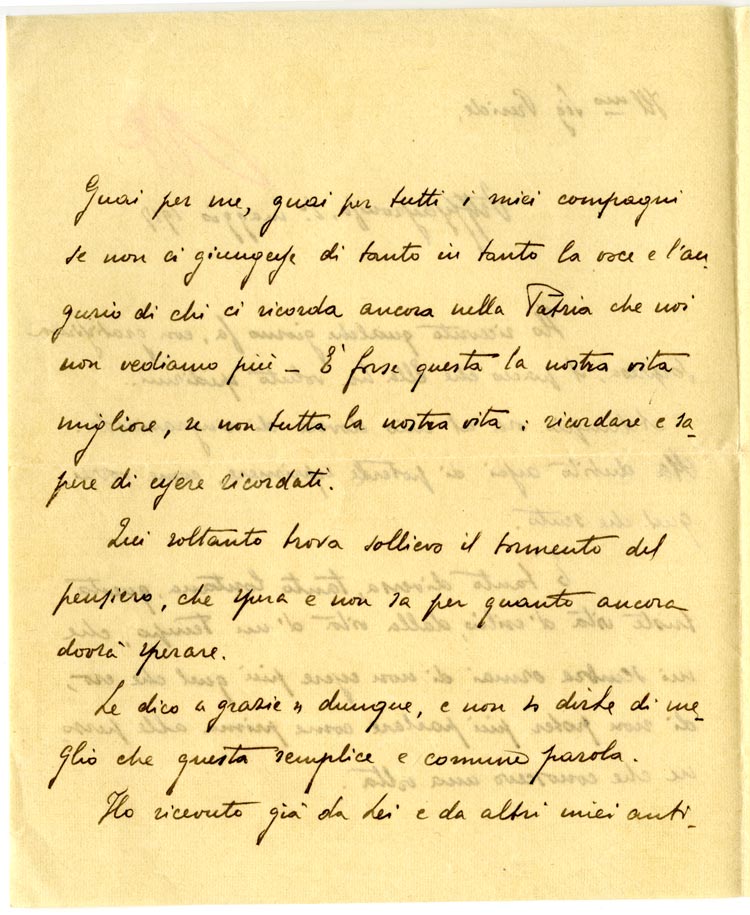 Guai per me, guai per tutti i miei compagni
se non ci giungesse di tanto in tanto la voce e l'au-
gurio di chi ci ricorda ancora nella Patria che noi
non vediamo più – È forse questa la nostra vita
migliore, se non tutta la nostra vita: ricordare e sa-
pere di essere ricordati.
Qui soltanto trova sollievo il tormento del
pensiero, che spera e non sa per quanto ancora
dovrà sperare.
Le dico « grazie » dunque, e non so dirLe di me-
glio che questa semplice e comune parola.
Ho ricevuto già da Lei e da altri miei anti-